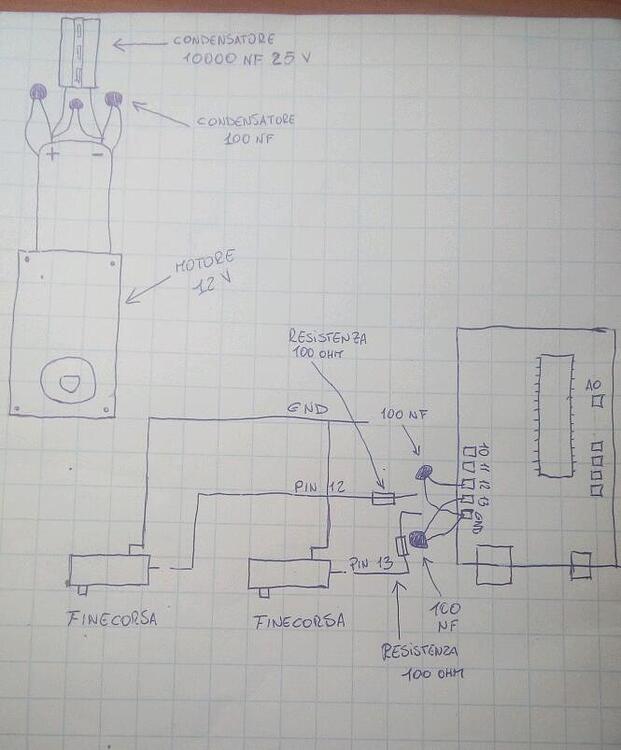 CONDENSATORE
10000 NF 25 V
CONDENSATORE
100 NF
+ -
MOTORE
12 V
RESISTENZA
100 OHM
GND
100 NF
A0
10
11
12
13
GND
PIN 12
PIN 13
FINECORSA
FINECORSA
100
NF
RESISTENZA
100 OHM